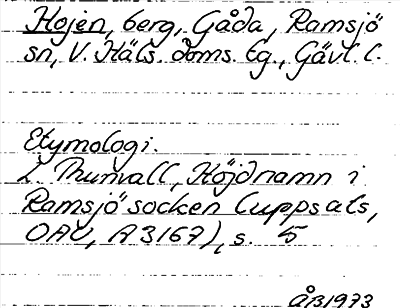 Hojen, berg, Gåda, Ramsjö
sn, V. Häls. doms. tg., Gävl. l.
Etymologi.
L. Thunvall, Höjdnamn i
Ramsjö socken (uppsats,
OAU, A 3167), s. 5
ÅB1973